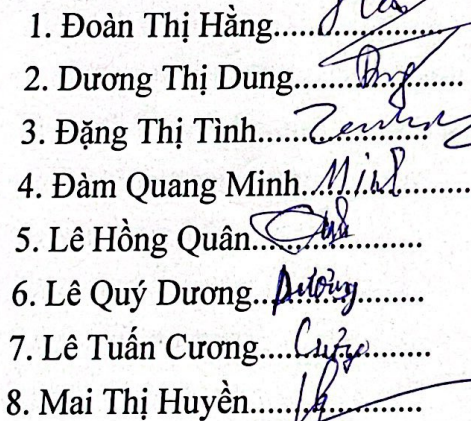 1. Đoàn Thị Hằng......
2. Dương Thị Dung......
3. Đặng Thị Tình......
4. Đàm Quang Minh...Minh......
5. Lê Hồng Quân......
6. Lê Quý Dương...Dương......
7. Lê Tuấn Cương......
8. Mai Thị Huyền......